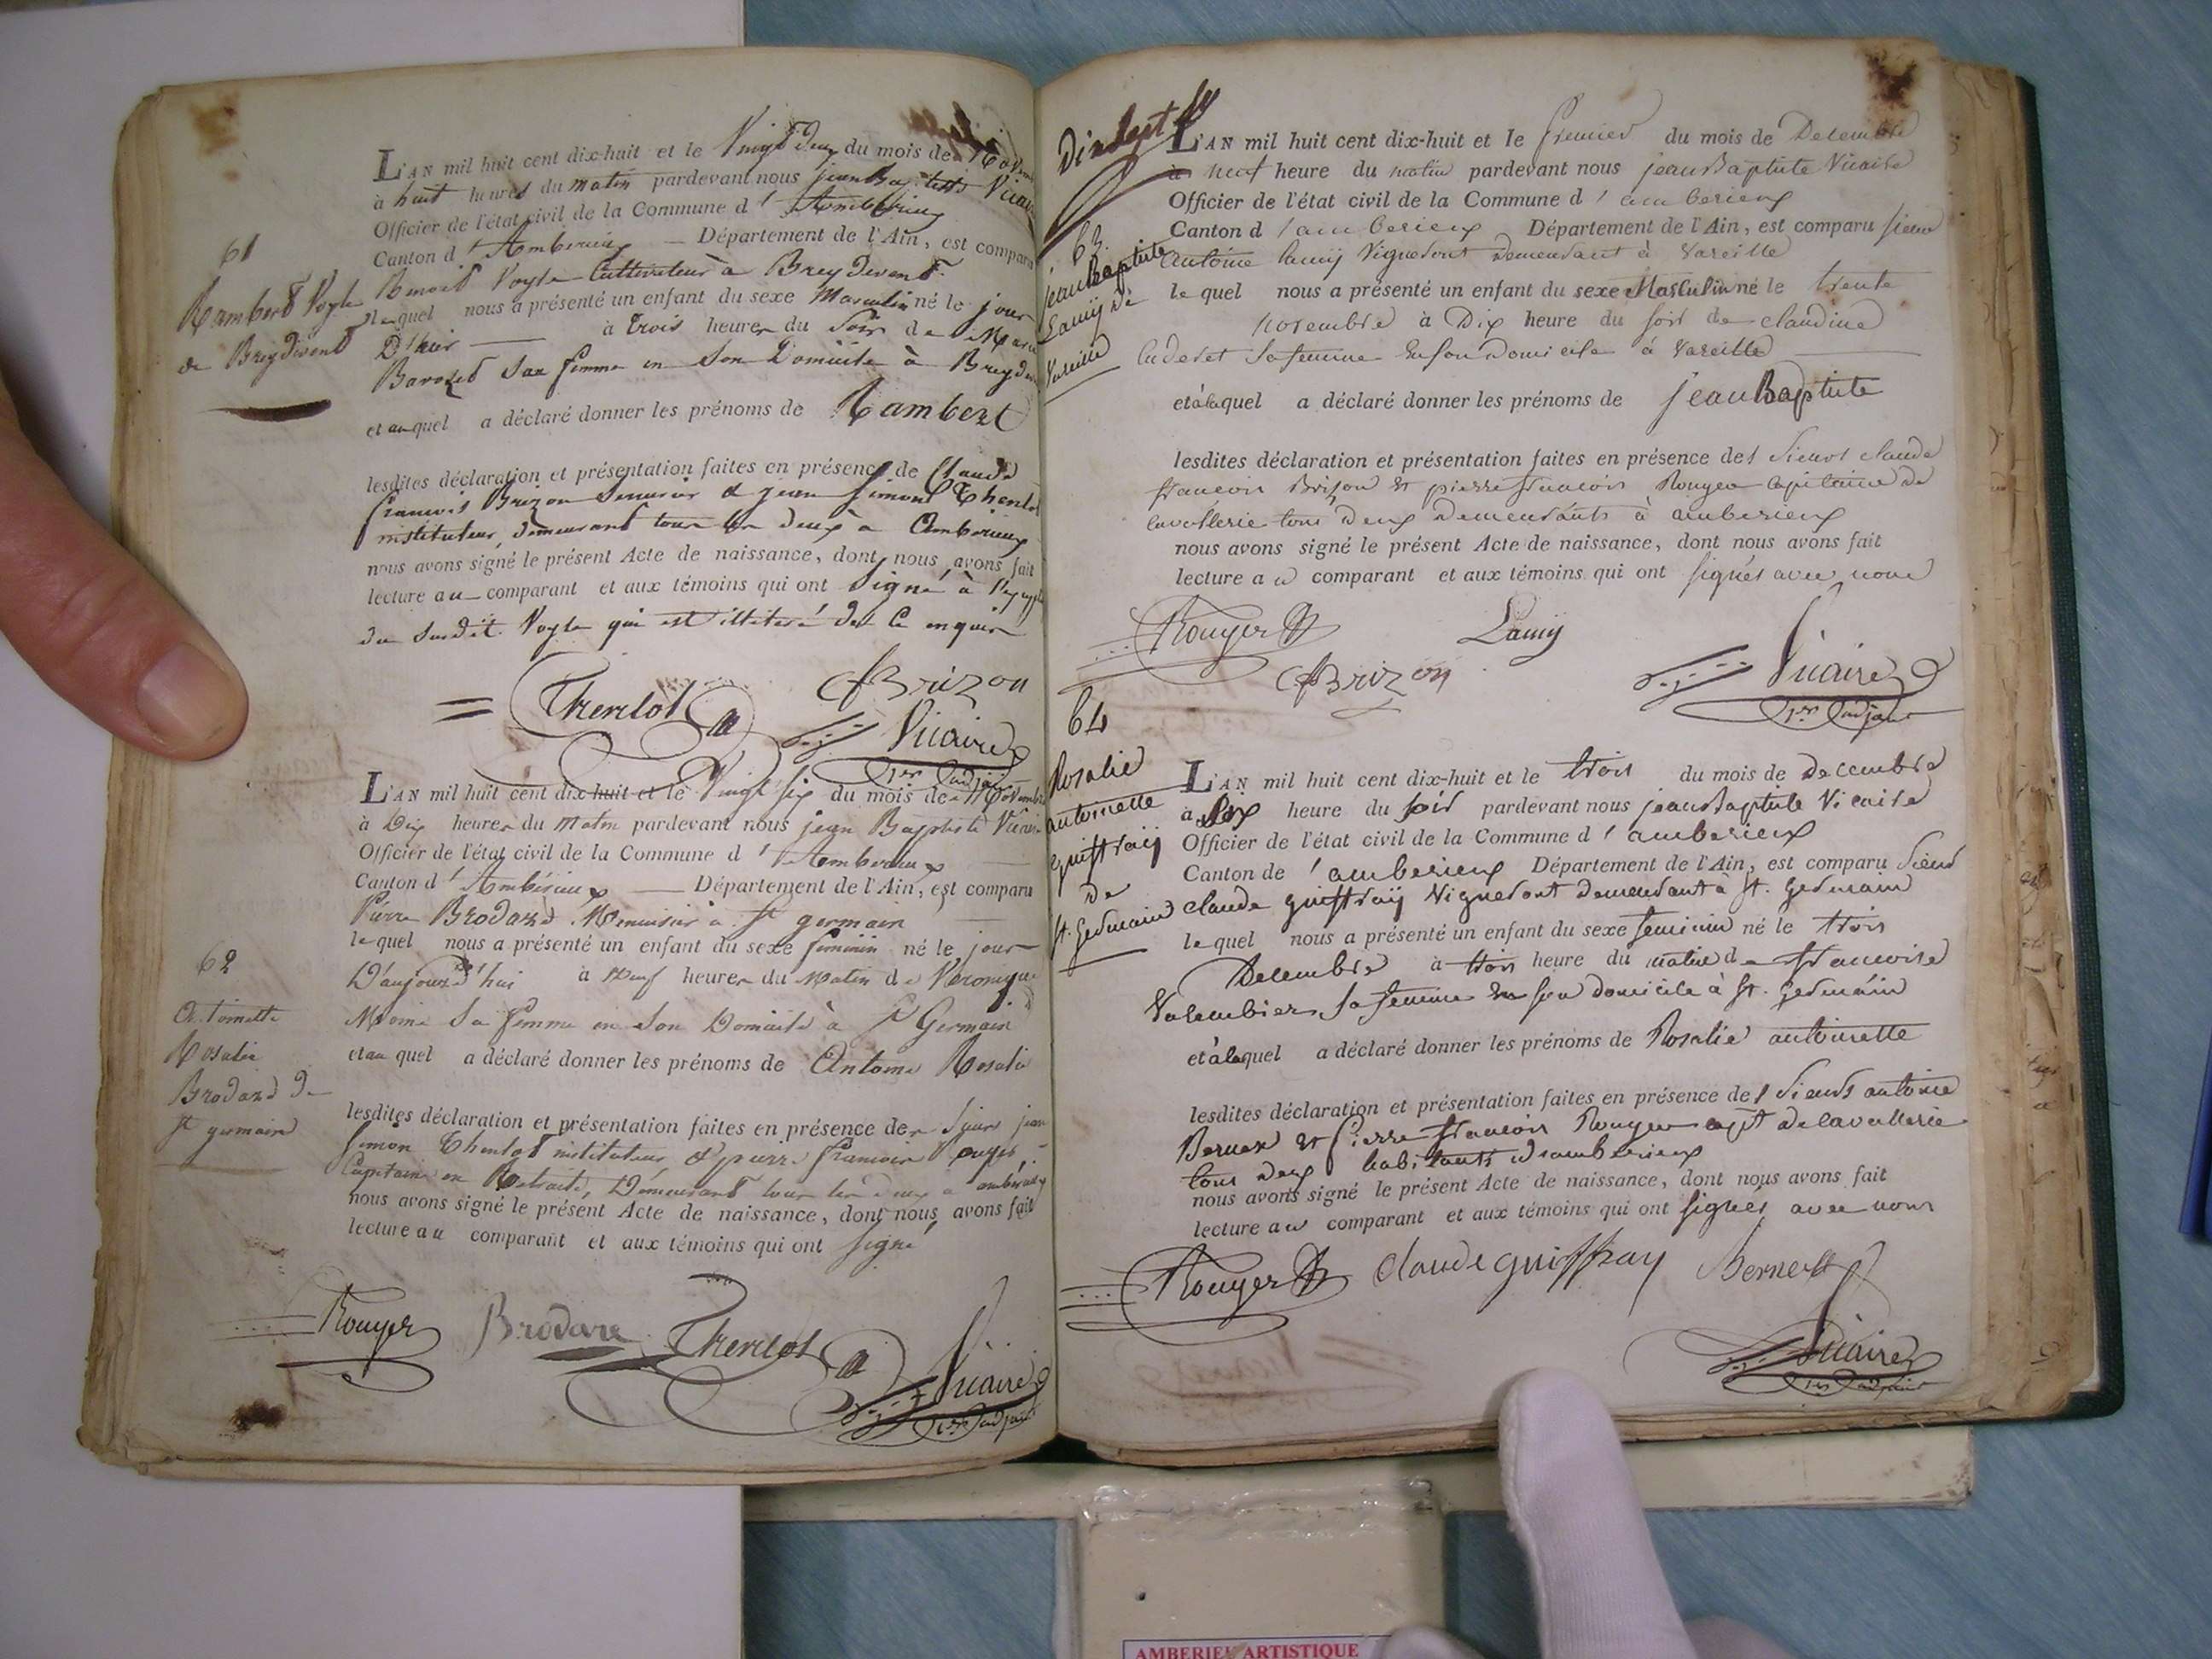 61
Rambert Vogle
de Breydevent
L'AN mil huit cent dix-huit et le Vingt deux du mois de
à huit heures du matin pardevant nous jean Baptiste Vicaire
Officier de l'état civil de la Commune d'Amberieux
Canton d'Amberieux — Département de l'Ain, est comparu
Benoit Vogle Cultivateur à Breydevent
lequel nous a présenté un enfant du sexe Masculin né le jour
D'hier — à trois heures du Soir de Marie
Sa femme en Son Domicile à
et auquel a déclaré donner les prénoms de Rambert
lesdites déclaration et présentation faites en présence de Claude
françois Brizon & jean Simon Thenlot
instituteur, demeurant tous les deux à Amberieux
nous avons signé le présent Acte de naissance, dont nous avons fait
lecture au comparant et aux témoins qui ont Signé à
du Susdit Vogle qui est illiteré de ce enquis
Thenlot
Brizon
Vicaire
1er adjoint
62
Rosalie
Brodard de
st germain
L'AN mil huit cent dix-huit et le Vingt six du mois de Novembre
à Dix heures du Matin pardevant nous jean Baptiste Vicaire
Officier de l'état civil de la Commune d'Amberieux
Canton d'Amberieux — Département de l'Ain, est comparu
Pierre Brodard Menuisier à st germain
lequel nous a présenté un enfant du sexe feminin né le jour
D'aujourd'hui à Neuf heures du Matin de Veronique
Sa femme en Son Domicile à St Germain
et au quel a déclaré donner les prénoms de Antoine Rosalie
lesdites déclaration et présentation faites en présence des Sieurs jean
Simon Thenlot instituteur & pierre françois Rouyer
Capitaine en Retraite, Demeurant tous les deux a amberieux
nous avons signé le présent Acte de naissance, dont nous avons fait
lecture au comparant et aux témoins qui ont signé
Rouyer
Brodare
Thenlot
Vicaire
1er adjoint
Dixsept
63
jean Baptiste
Lamy de
Vareille
L'AN mil huit cent dix-huit et le premier du mois de Decembre
à neuf heure du matin pardevant nous jean Baptiste Vicaire
Officier de l'état civil de la Commune d'amberieux
Canton d'amberieux Département de l'Ain, est comparu sieur
antoine lamy Vigneront demeurant à Vareille
le quel nous a présenté un enfant du sexe Masculin né le trente
novembre à Dix heure du soir de claudine
sa femme en son domicile à Vareille
et à laquel a déclaré donner les prénoms de jean Baptiste
lesdites déclaration et présentation faites en présence des Sieurs claude
francois Brizon et pierre francois Rouyer capitaine de
cavallerie tous deux demeurants à amberieux
nous avons signé le présent Acte de naissance, dont nous avons fait
lecture au comparant et aux témoins qui ont signés avec nous
Rouyer
Lamy
Brizon
Vicaire
1er adjoint
64
Rosalie
antoinette
guiffray
de
st. Germain
L'AN mil huit cent dix-huit et le trois du mois de Decembre
à Six heure du soir pardevant nous jean Baptiste Vicaire
Officier de l'état civil de la Commune d'amberieux
Canton de l'amberieux Département de l'Ain, est comparu sieur
claude guiffray Vigneront demeurant à st. germain
le quel nous a présenté un enfant du sexe feminin né le trois
Decembre à trois heure du matin de francoise
sa femme en son domicile à st. germain
et à laquel a déclaré donner les prénoms de Rosalie antoinette
lesdites déclaration et présentation faites en présence des Sieurs antoine
Bernex et Pierre francois Rouyer capt de cavallerie
tous deux habitants d'amberieux
nous avons signé le présent Acte de naissance, dont nous avons fait
lecture au comparant et aux témoins qui ont signés avec nous
Rouyer
claude guiffray
Vicaire
1er adjoint
ARTISTIQUE